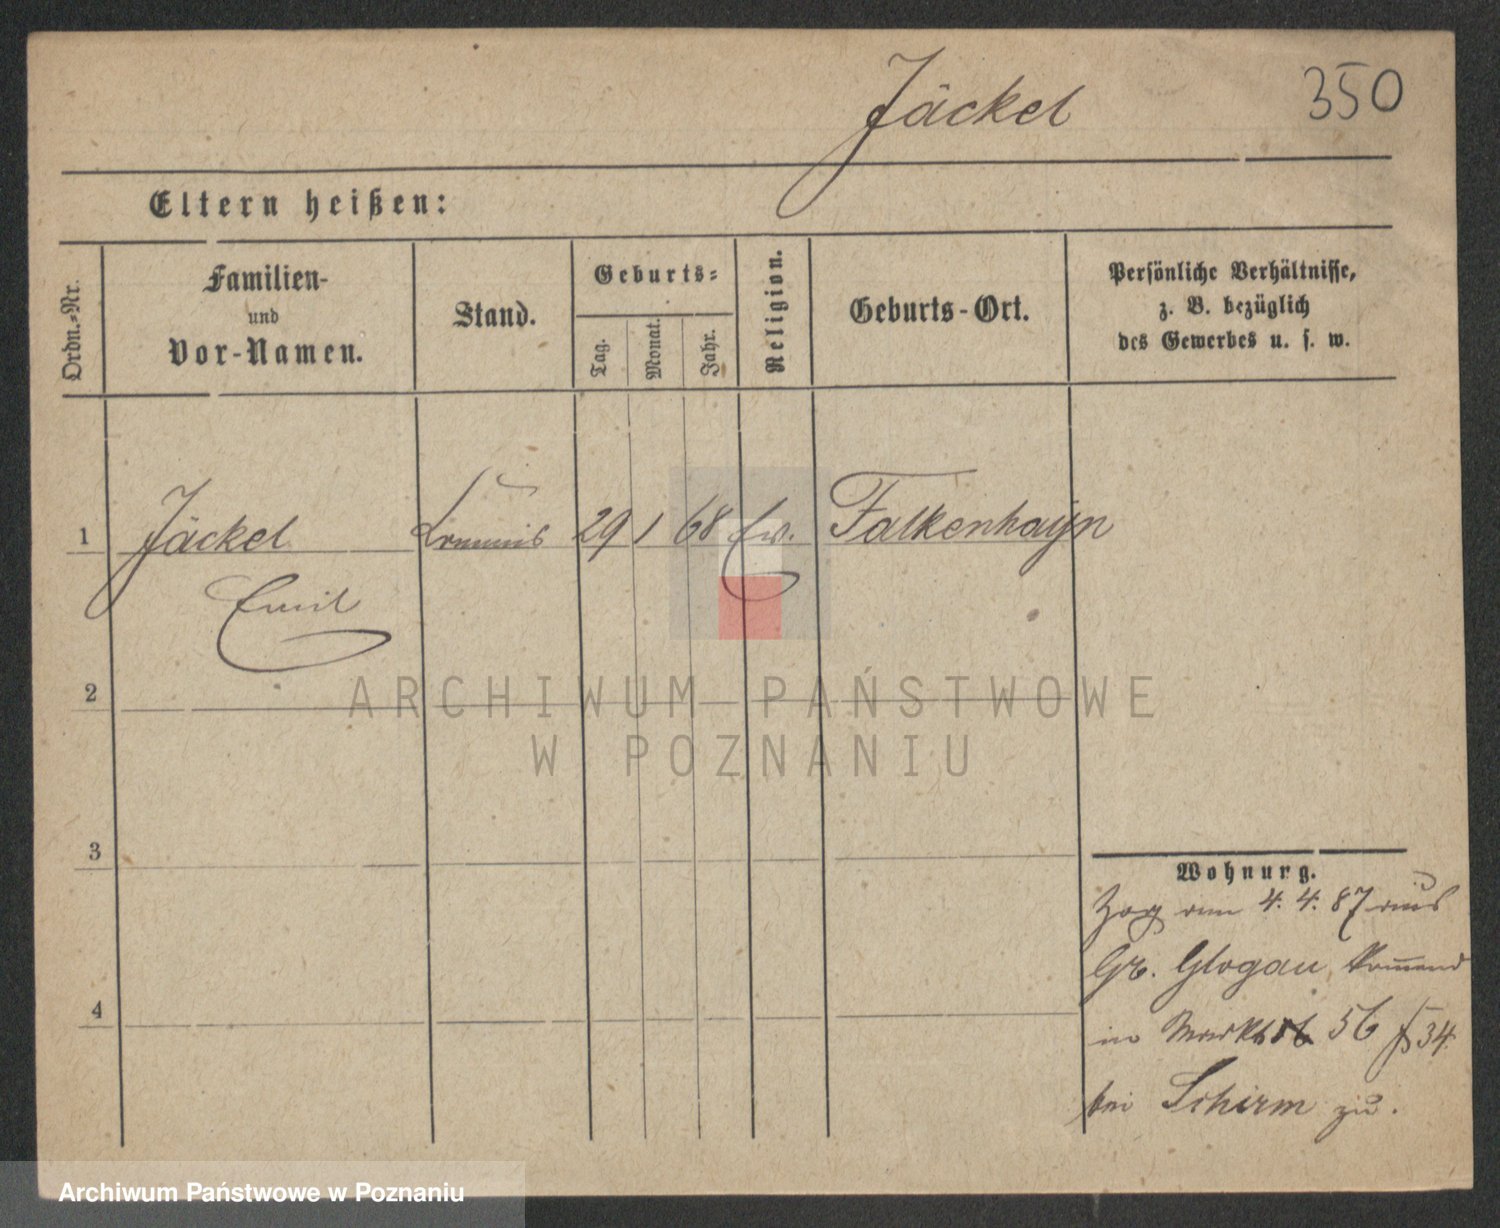 Jäckel
350
Eltern heißen:
Ordn.=Nr.
Familien-
und
Vor-Namen.
Stand.
Geburts=
Tag.
Monat.
Jahr.
Religion.
Geburts-Ort.
Persönliche Verhältnisse,
z. B. bezüglich
des Gewerbes u. s. w.
1 Jäckel Commis 29 1 68 Ev. Falkenhayn
Emil
2
ARCHIWUM PAŃSTWOWE
W POZNANIU
3
4
Wohnung.
Zog am 4. 4. 87 aus
Gr. Glogau kommend
in Markt 56 34
bei Schirm zu.
Archiwum Państwowe w Poznaniu